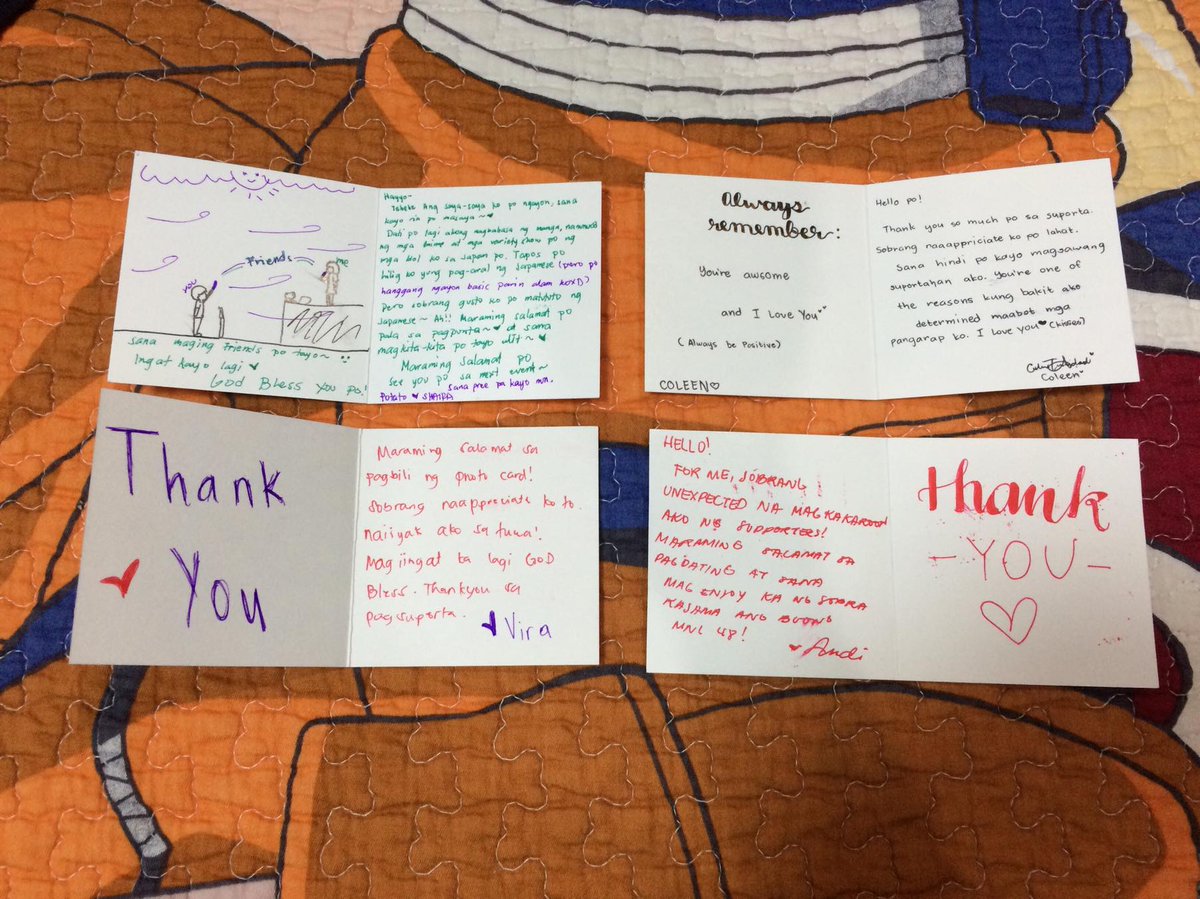 you
Friends
me
sana maging friends po tayo~
Ingat kayo lagi
God Bless you po!
Hayyo~
Ang saya-saya ko po ngayon, sana
kayo rin po masaya~
Dati po lagi akong nagbabasa ng manga, nanunuod
ng mga anime at mga variety show po ng
mga idol ko sa Japan po. Tapos po
hilig ko yung pag-aral ng Japanese (pero po
hanggang ngayon basic parin alam ko XD)
Pero sobrang gusto ko po matututo ng
Japanese~ Ah!! Maraming salamat po
pala sa pagpunta~ at sana
magkita-kita po tayo ulit~
Maraming Salamat po
See you po sa next event~
Sana free pa kayo nun.
Potato ♥ SHAIRA
Always
remember:
You're awsome
and I Love You♥
(Always be Positive)
COLEEN♡
Hello po!
Thank you so much po sa suporta.
Sobrang naaappriciate ko po lahat.
Sana hindi po kayo magsawang
suportahan ako. You're one of
the reasons kung bakit ako
determined maabot mga
pangarap ko. I love you♥ (kisses)
Coleen♥
Thank
♥ You
Maraming salamat sa
pagbili ng photo card!
Sobrang naappreciate ko to.
naiiyak ako sa tuwa!
Magiingat ka lagi GOD
Bless. Thankyou sa
pagsuporta.
♥ Vira
HELLO!
FOR ME, SOBRANG
UNEXPECTED NA MAGKAKAROON
AKO NG SUPPORTERS!
MARAMING SALAMAT SA
PAGDATING AT SANA
MAG ENJOY KA NG SOBRA
KASAMA ANG BUONG
MNL 48!
♥ Andi
thank
- YOU -